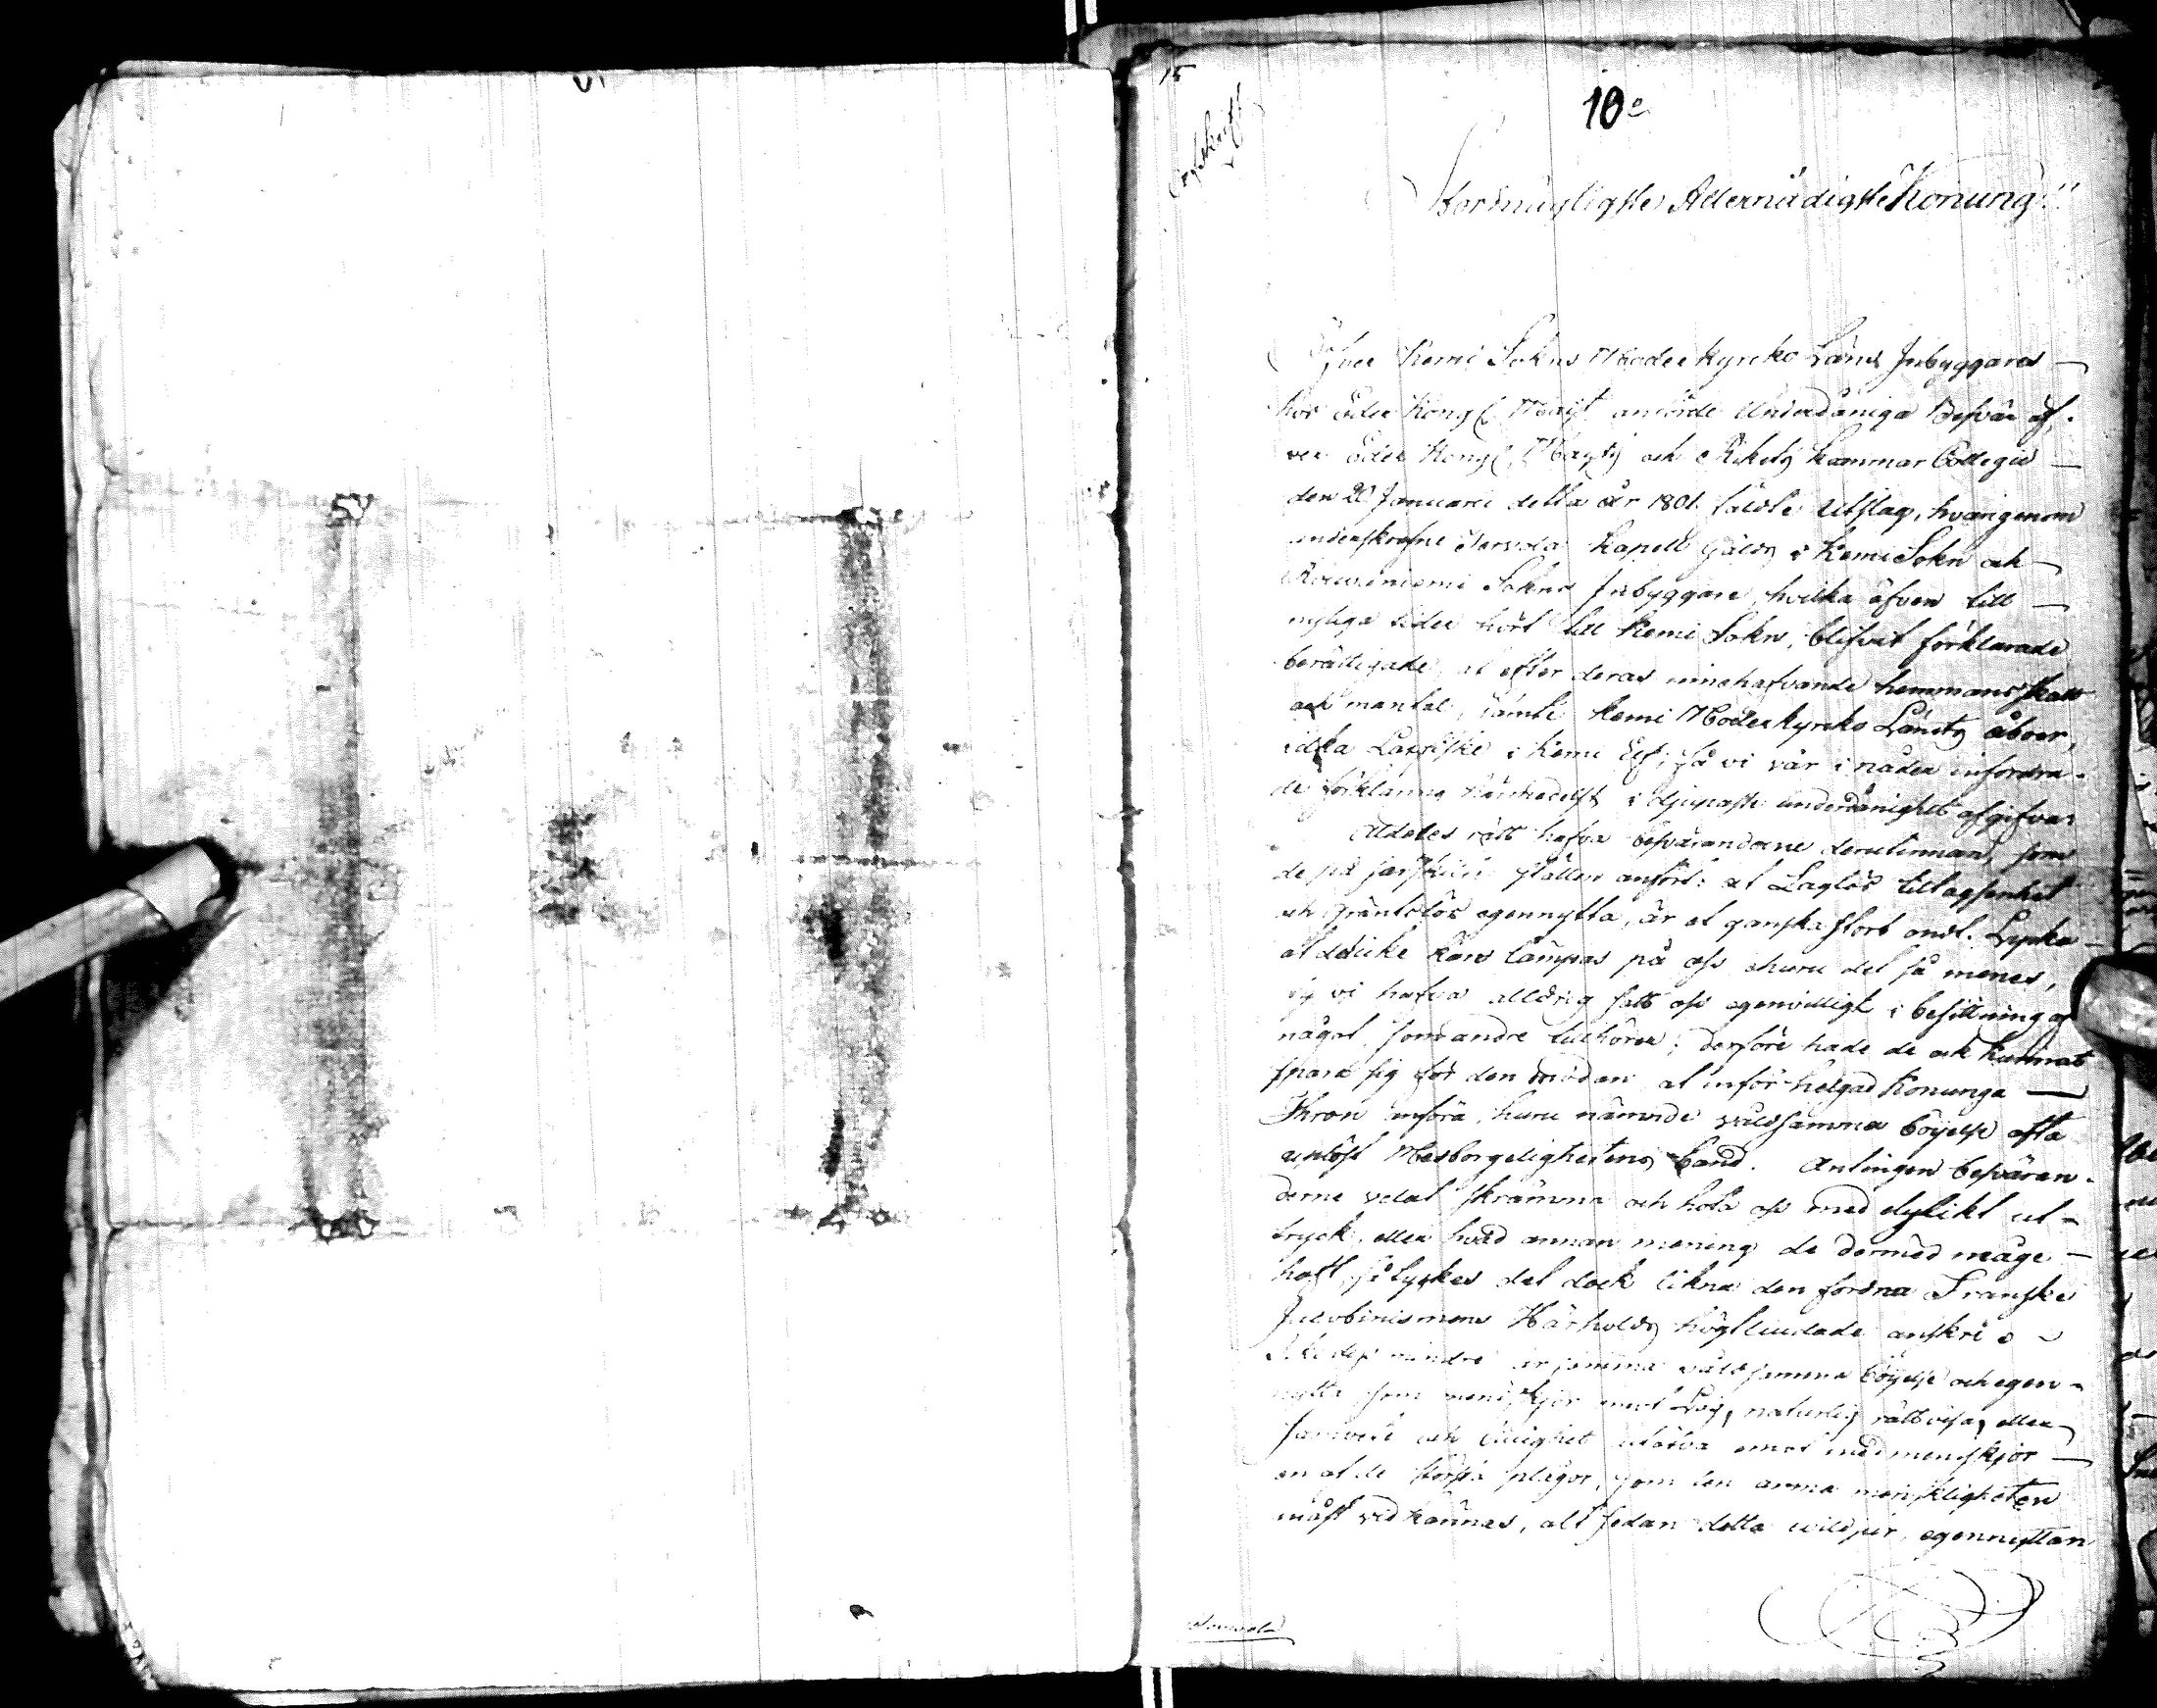 15
10o
Stormägtigste Allernådigste Konung!!
Öfver Kemi Sokns Moderkyrko Läns Inbyggares
hos Eder Kongl. Majst anförde Underdåniga Besvär öf-
ver Eder Kongl. Majsts och Rikets Kammar Collegii
den 20 Januarii detta år 1801. fälde Utslag, hvarigenom
underskrefne Tervola Kapell Gälds i Kemi Sokn och
Rovaniemi Sokns Inbyggare, hvilka äfven till
nyliga tider hört till Kemi Sokn, blifvit förklarade
berättigade, at efter deras innehafvande hemmans skatt
och mantal, jämte Kemi Moderkyrko Länets åboer,
idka Laxfiske i Kemi Elf; få vi vår i nåder infordra-
de förklaring härmedelst i djupaste underdånighet afgifva:
Aldeles rätt hafva besväranderne derutinnan, som
de på särskilte ställen anfört: at Laglös tilltagsenhet
och gräntslös egennytta, är et ganska stort ondt. Lycka
at ddicke kan lämpas på oss ehuru det så menes,
ty vi hafva alldrig satt oss egenvilligt i besittning af
något, som andre tillhörer; derföre hade de ock kunnat
spara sig för den mödan at inför helgad Konunga
Thron anföra, huru nämnde våldsamma böjelse ofta
uplöst Medborgelighetens band. Antingen besväran-
derne velat skrämma och hota oss med dylikt ut-
tryck, eller hvad annan mening de dermed måge
haft, så tyckes det dock likna den fordna Franske
Jacobinismens Härholds högtliudade anskri
Icke dess mindre är samma våldsamma böjelse och egen-
nytta som menskjor mot Lag, naturlig rättvisa, eller
samvete och billighet utöfva emot medmenskjor
en af de största plågor, som den arma menskligheten
måst vidkännas, alt sedan detta vilddjur, egennyttan